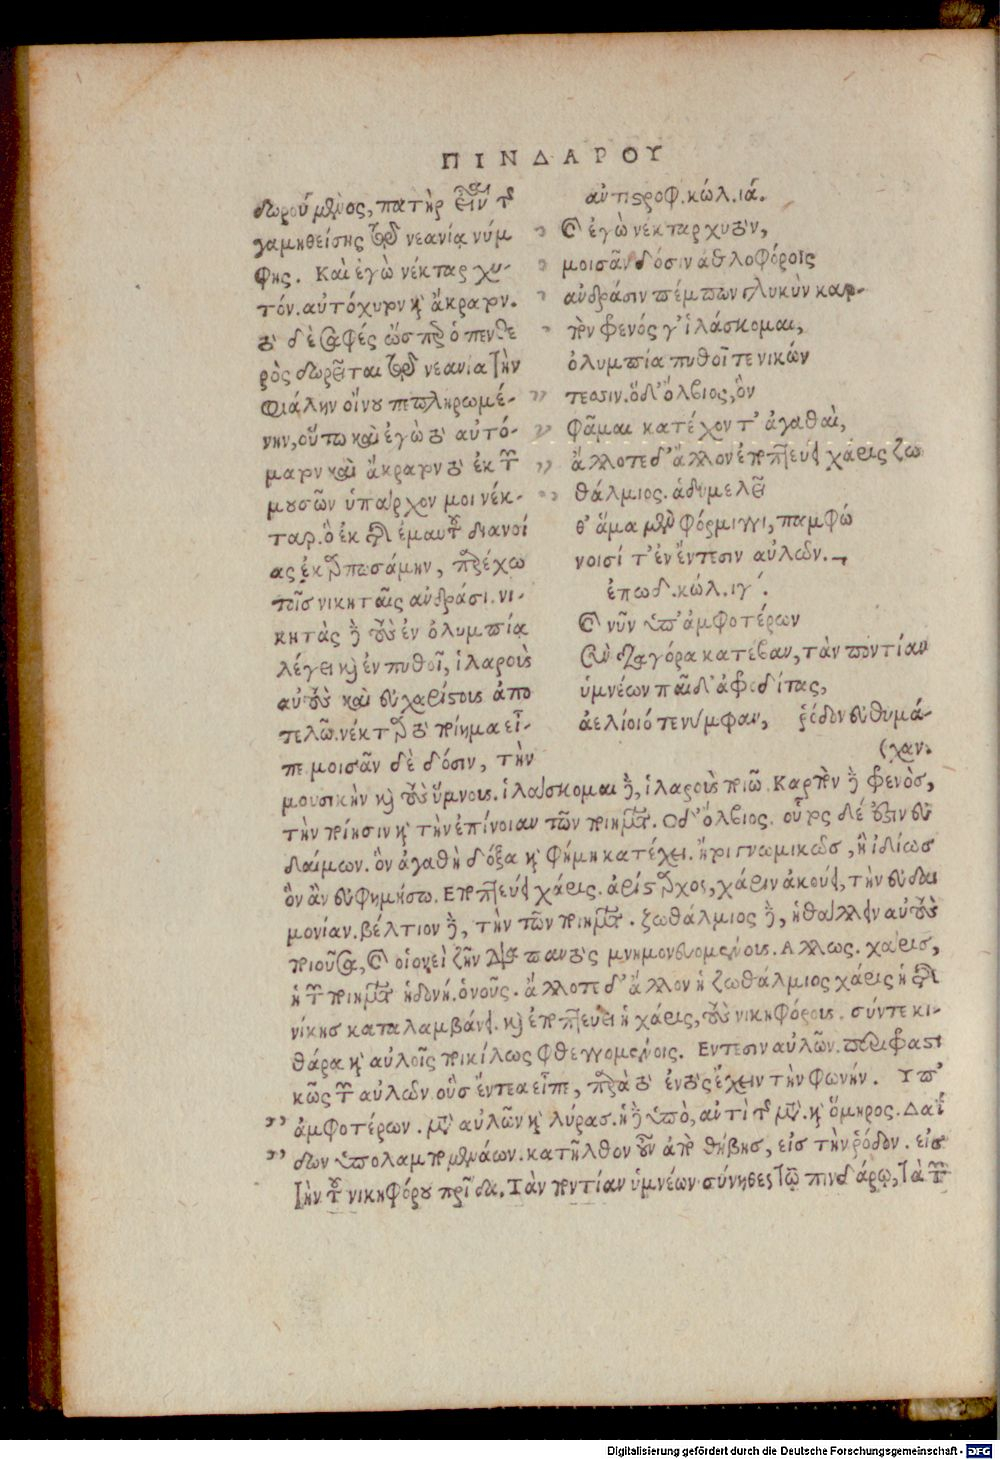 ΠΙΝΔΑΡΟΥ
δωρούμενος, πατὴρ
γαμηθείσης τῷ νεανίᾳ νύμ
φης. Καὶ ἐγὼ νέκταρ χυ-
τόν. αὐτόχυτον καὶ ἄκρατον.
τὸ δὲ σαφές ὥσπερ ὁ πενθε
ρὸς δωρεῖται τῷ νεανία τὴν
φιάλην οἴνου πεπληρωμέ-
νην, οὕτω καὶ ἐγὼ τὸ αὐτό-
ματον καὶ ἄκρατον τὸ ἐκ τῶν
μουσῶν ὑπάρχον μοι νέκ-
ταρ. ὃ ἐκ τῆς ἐμαυτοῦ διανοί
ας ἐκ, παρέχω
τοῖς νικηταῖς ἀνδράσι. νι-
κητὰς δὲ τοὺς ἐν ὀλυμπίᾳ
λέγει καὶ ἐν πυθοῖ, ἱλαροὺς
αὐτοὺς καὶ εὐχαρίστους ἀπο
τελῶ. νέκταρ τὸ ποίημα εἶ-
πε μοισᾶν δὲ δόσιν, τὴν
ἀντιστροφ. κώλ. ιά.
Καὶ ἐγὼ νέκταρ χυτὸν,
μοισᾶν δόσιν ἀθλοφόροις
ἀνδράσιν πέμπων γλυκὺν καρ-
πὸν φρενός γ' ἱλάσκομαι,
ὀλυμπία πυθοῖ τε νικών
τεσσιν. ὁ δ' ὄλβιος, ὃν
φᾶμαι κατέχοντ' ἀγαθαὶ,
ἄλλοτε δ' ἄλλον ἐποπτεύει χάρις ζω
θάλμιος. ἁδυμελεῖ
θ' ἅμα μὲν φόρμιγγι, παμφώ
νοισί τ' ἐν ἔντεσιν αὐλῶν.
ἐπωδ. κώλ. ιγ'.
Καὶ νῦν ὑπ' ἀμφοτέρων
σὺν διαγόρα κατέβαν, τὰν ποντίαν
ὑμνέων παῖδ' ἀφροδίτας,
ἀελίοιό τε νύμφαν, ῥόδον εὐθυμά-
(χαν.
μουσικὴν καὶ τοὺς ὕμνους. ἱλάσκομαι δὲ, ἱλαροὺς ποιῶ. Καρπὸν δὲ φρενὸς,
τὴν ποίησιν καὶ τὴν ἐπίνοιαν τῶν ποιημάτων. Ὁ δ' ὄλβιος. οὗτος δέ ἐστιν εὐ
δαίμων. ὃν ἀγαθὴ δόξα καὶ φήμη κατέχει. ἤτοι γνωμικῶς, ἢ ἰδίως
ὃν ἂν εὐφημήσω. Εποπτεύει χάρις. ἀρίσταρχος, χάριν ἀκούει, τὴν εὐδαι
μονίαν. βέλτιον δὲ, τὴν τῶν ποιημάτων. ζωθάλμιος δὲ, ἡ θάλλειν αὐτοὺς
ποιοῦσα, καὶ οἱονεὶ ζῆν διὰ παντὸς μνημονευομένους. Αλλως. χάρις,
ἡ τῶν ποιημάτων ἡδονή. ὁ νοῦς. ἄλλοτε δ' ἄλλον ἡ ζωθάλμιος χάρις ἡ τῆς
νίκης καταλαμβάνει. καὶ ἐποπτεύει ἡ χάρις, τοὺς νικηφόρους. σύν τε κι-
θάρα καὶ αὐλοῖς ποικίλως φθεγγομένοις. Εντεσιν αὐλῶν. περιφραστι
κῶς τῶν αὐλῶν οὓς ἔντεα εἶπε, παρὰ τὸ ἐντὸς ἔχειν τὴν φωνήν. Υπ'
ἀμφοτέρων. μετ' αὐλῶν καὶ λύρας. ἡ δὲ ὑπὸ, ἀντὶ τῆς μετά. καὶ ὅμηρος. Δαΐ
δων ὑπολαμπομενάων. κατῆλθον οὖν ἀπὸ θήβης, εἰς τὴν ῥόδον. εἰς
τὴν τοῦ νικηφόρου πατρίδα. Τὰν ποντίαν ὑμνέων σύνηθες τῷ πινδάρῳ, τὰ τῶν
Digitalisierung gefördert durch die Deutsche Forschungsgemeinschaft - DFG